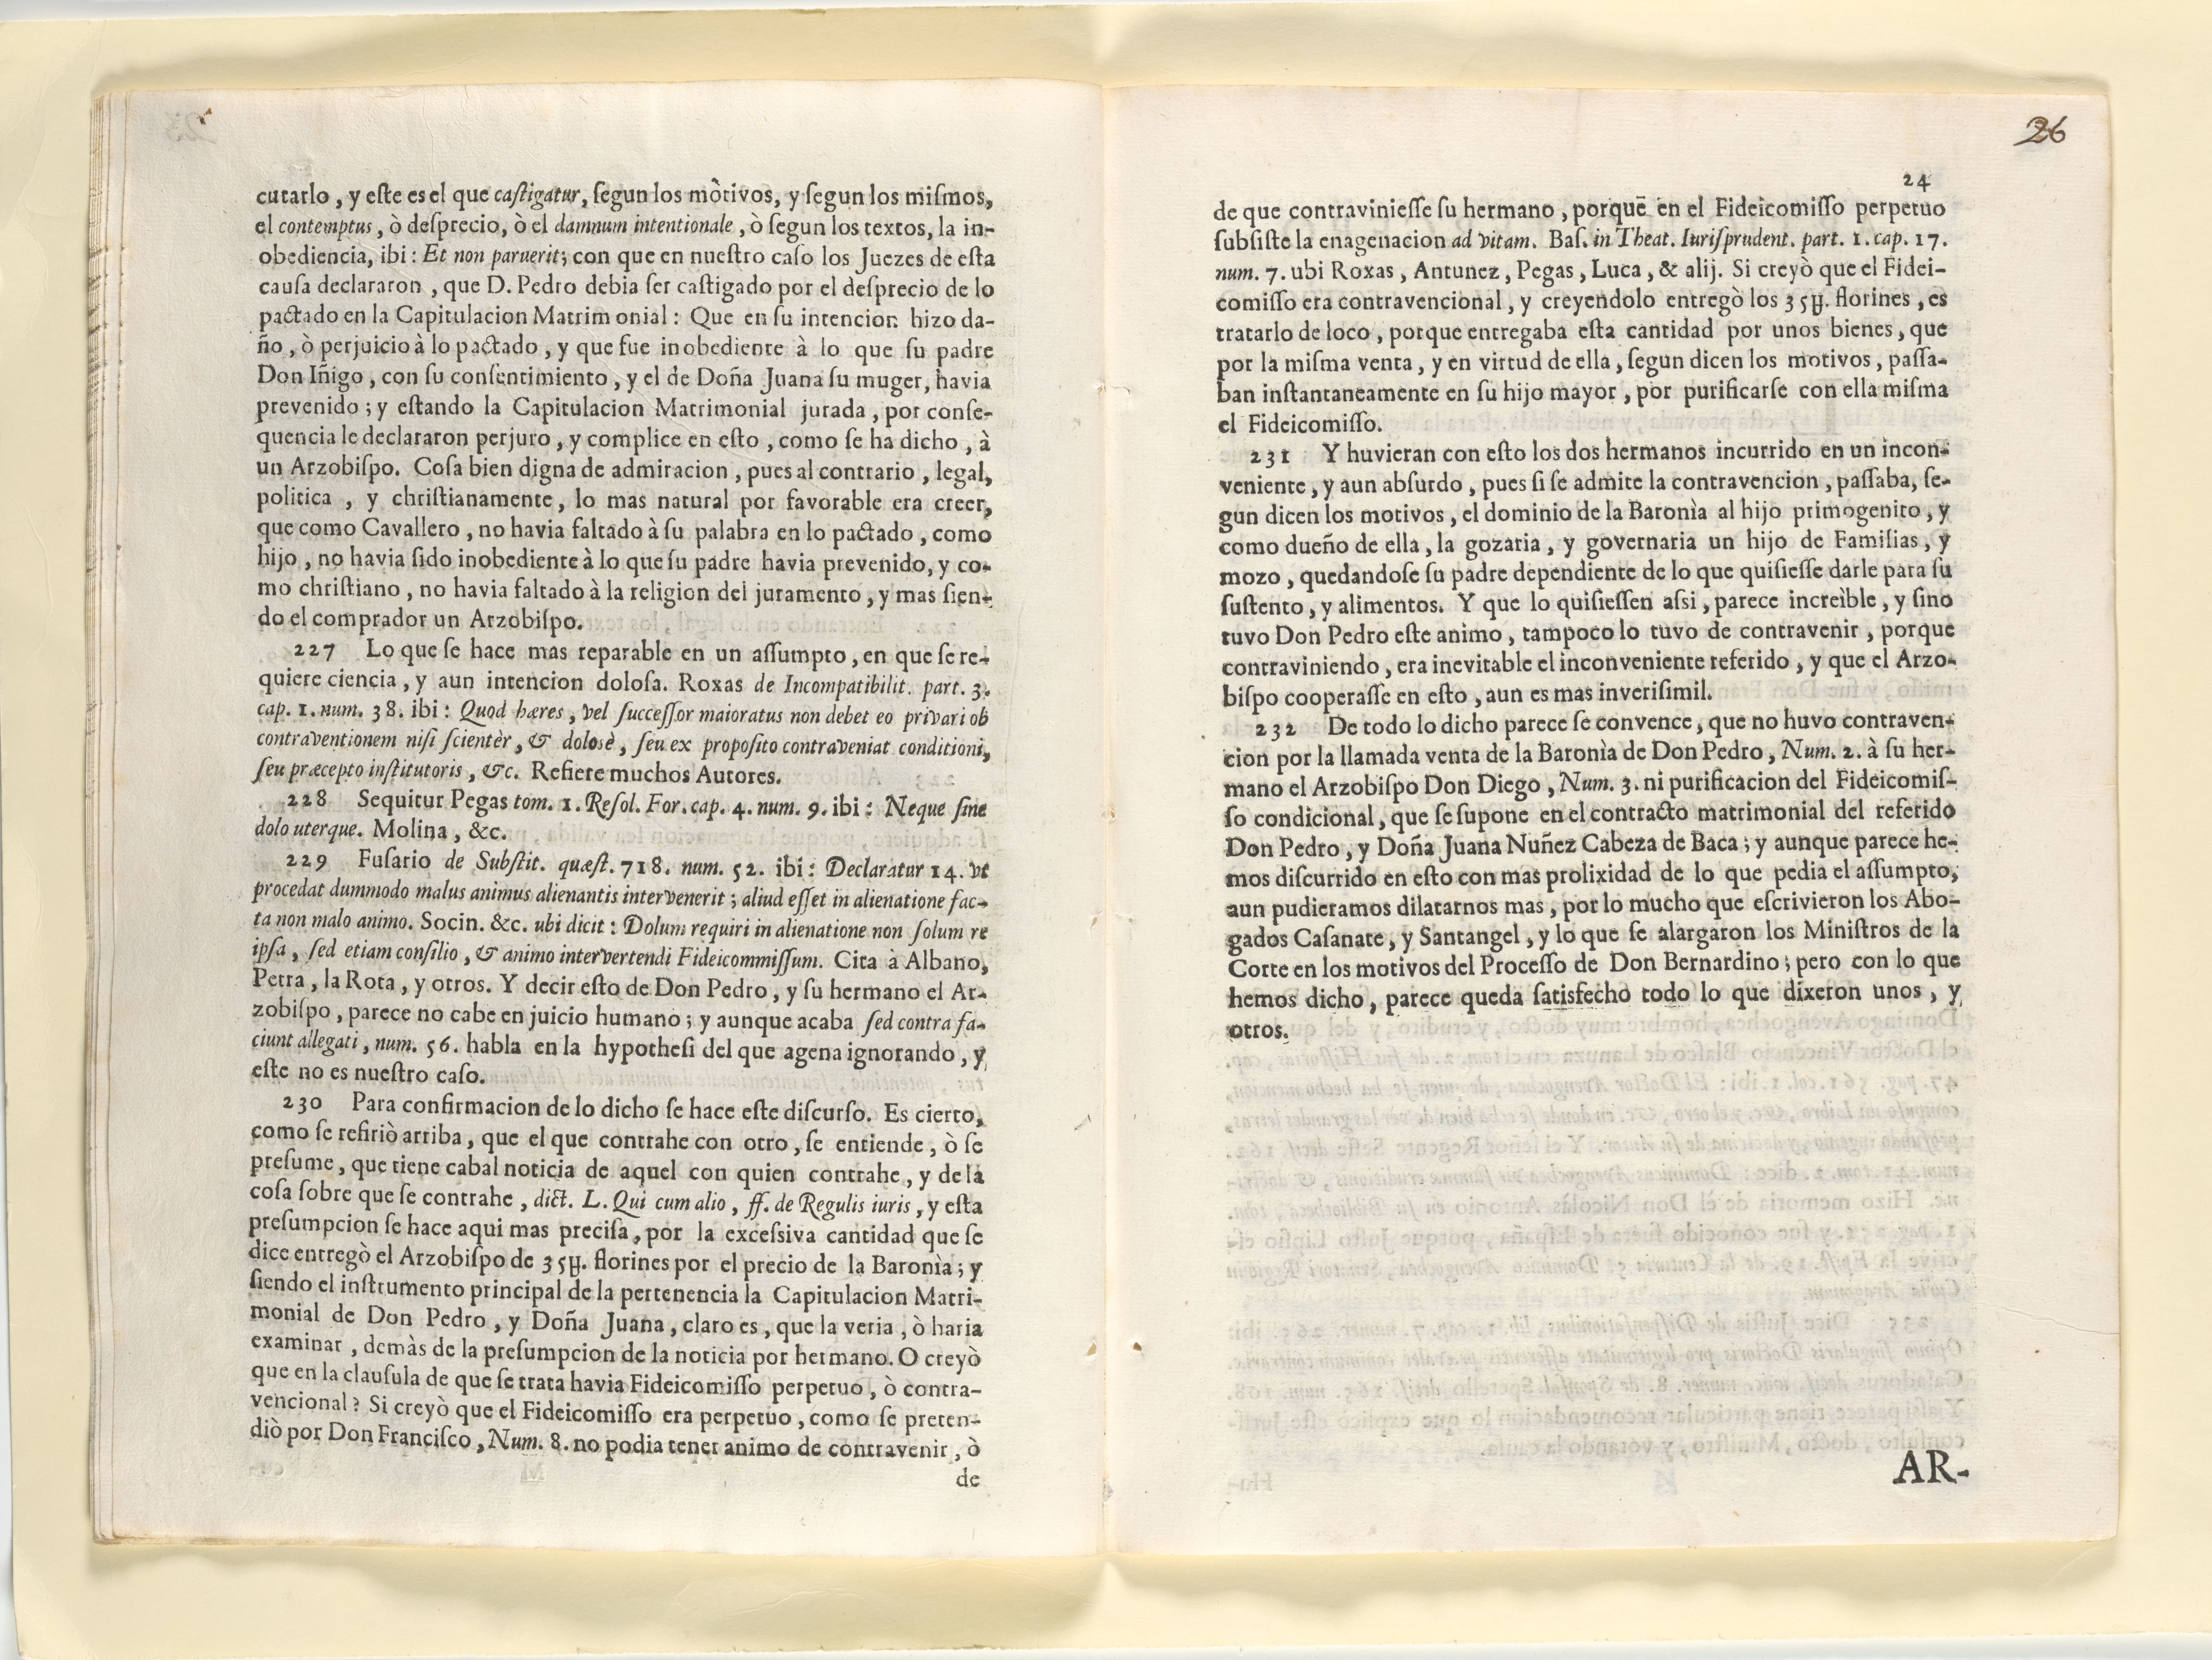 cutarlo, y eſte es el que caſtigatur, ſegun los mòtivos, y ſegun los miſmos,
el contemptus, ò deſprecio, ò el damnum intentionale, ò ſegun los textos, la in-
obediencia, ibi: Et non paruerit; con que en nueſtro caſo los Juezes de eſta
cauſa declararon, que D. Pedro debia ſer caſtigado por el deſprecio de lo
pactado en la Capitulacion Matrimonial: Que en ſu intencion hizo da-
ño, ò perjuicio à lo pactado, y que fue inobediente à lo que ſu padre
Don Iñigo, con ſu conſentimiento, y el de Doña Juana ſu muger, havia
prevenido; y eſtando la Capitulacion Matrimonial jurada, por conſe-
quencia le declararon perjuro, y complice en eſto, como ſe ha dicho, à
un Arzobiſpo. Coſa bien digna de admiracion, pues al contrario, legal,
politica, y chriſtianamente, lo mas natural por favorable era creer,
que como Cavallero, no havia faltado à ſu palabra en lo pactado, como
hijo, no havia ſido inobediente à lo que ſu padre havia prevenido, y co-
mo chriſtiano, no havia faltado à la religion del juramento, y mas ſien-
do el comprador un Arzobiſpo.
227 Lo que ſe hace mas reparable en un aſſumpto, en que ſe re-
quiere ciencia, y aun intencion doloſa. Roxas de Incompatibilit. part. 3.
cap. 1. num. 38. ibi: Quod hæres, vel ſucceſſor maioratus non debet eo privari ob
contraventionem niſi ſcientèr, & dolosè, ſeu ex propoſito contraveniat conditioni,
ſeu præcepto inſtitutoris, &c. Refiere muchos Autores.
228 Sequitur Pegas tom. 1. Reſol. For. cap. 4. num. 9. ibi: Neque ſine
dolo uterque. Molina, &c.
229 Fuſario de Subſtit. quæſt. 718. num. 52. ibi: Declaratur 14. vt
procedat dummodo malus animus alienantis intervenerit; aliud eſſet in alienatione fac-
ta non malo animo. Socin. &c. ubi dicit: Dolum requiri in alienatione non ſolum re
ipſa, ſed etiam conſilio, & animo intervertendi Fideicommiſſum. Cita à Albano,
Petra, la Rota, y otros. Y decir eſto de Don Pedro, y ſu hermano el Ar-
zobiſpo, parece no cabe en juicio humano; y aunque acaba ſed contra fa-
ciunt allegati, num. 56. habla en la hypotheſi del que agena ignorando, y
eſte no es nueſtro caſo.
230 Para confirmacion de lo dicho ſe hace eſte diſcurſo. Es cierto,
como ſe refiriò arriba, que el que contrahe con otro, ſe entiende, ò ſe
preſume, que tiene cabal noticia de aquel con quien contrahe, y de la
coſa ſobre que ſe contrahe, dict. L. Qui cum alio, ff. de Regulis iuris, y eſta
preſumpcion ſe hace aqui mas preciſa, por la exceſsiva cantidad que ſe
dice entregò el Arzobiſpo de 35y. florines por el precio de la Baronìa; y
ſiendo el inſtrumento principal de la pertenencia la Capitulacion Matri-
monial de Don Pedro, y Doña Juana, claro es, que la veria, ò haria
examinar, demàs de la preſumpcion de la noticia por hermano. O creyò
que en la clauſula de que ſe trata havia Fideicomiſſo perpetuo, ò contra-
vencional? Si creyò que el Fideicomiſſo era perpetuo, como ſe preten-
diò por Don Franciſco, Num. 8. no podia tener animo de contravenir, ò
de
26
24
de que contravinieſſe ſu hermano, porque en el Fideicomiſſo perpetuo
ſubſiſte la enagenacion ad vitam. Baſ. in Theat. Iuriſprudent. part. 1. cap. 17.
num. 7. ubi Roxas, Antunez, Pegas, Luca, & alij. Si creyò que el Fidei-
comiſſo era contravencional, y creyendolo entregò los 35y. florines, es
tratarlo de loco, porque entregaba eſta cantidad por unos bienes, que
por la miſma venta, y en virtud de ella, ſegun dicen los motivos, paſſa-
ban inſtantaneamente en ſu hijo mayor, por purificarſe con ella miſma
el Fideicomiſſo.
231 Y huvieran con eſto los dos hermanos incurrido en un incon-
veniente, y aun abſurdo, pues ſi ſe admite la contravencion, paſſaba, ſe-
gun dicen los motivos, el dominio de la Baronìa al hijo primogenito, y
como dueño de ella, la gozaria, y governaria un hijo de Familias, y
mozo, quedandoſe ſu padre dependiente de lo que quiſieſſe darle para ſu
ſuſtento, y alimentos. Y que lo quiſieſſen aſsi, parece increìble, y ſino
tuvo Don Pedro eſte animo, tampoco lo tuvo de contravenir, porque
contraviniendo, era inevitable el inconveniente referido, y que el Arzo-
biſpo cooperaſſe en eſto, aun es mas inveriſimil.
232 De todo lo dicho parece ſe convence, que no huvo contraven-
cion por la llamada venta de la Baronìa de Don Pedro, Num. 2. à ſu her-
mano el Arzobiſpo Don Diego, Num. 3. ni purificacion del Fideicomiſ-
ſo condicional, que ſe ſupone en el contracto matrimonial del referido
Don Pedro, y Doña Juana Nuñez Cabeza de Baca; y aunque parece he-
mos diſcurrido en eſto con mas prolixidad de lo que pedia el aſſumpto,
aun pudieramos dilatarnos mas, por lo mucho que eſcrivieron los Abo-
gados Caſanate, y Santangel, y lo que ſe alargaron los Miniſtros de la
Corte en los motivos del Proceſſo de Don Bernardino; pero con lo que
hemos dicho, parece queda ſatisfecho todo lo que dixeron unos, y
otros.
AR-